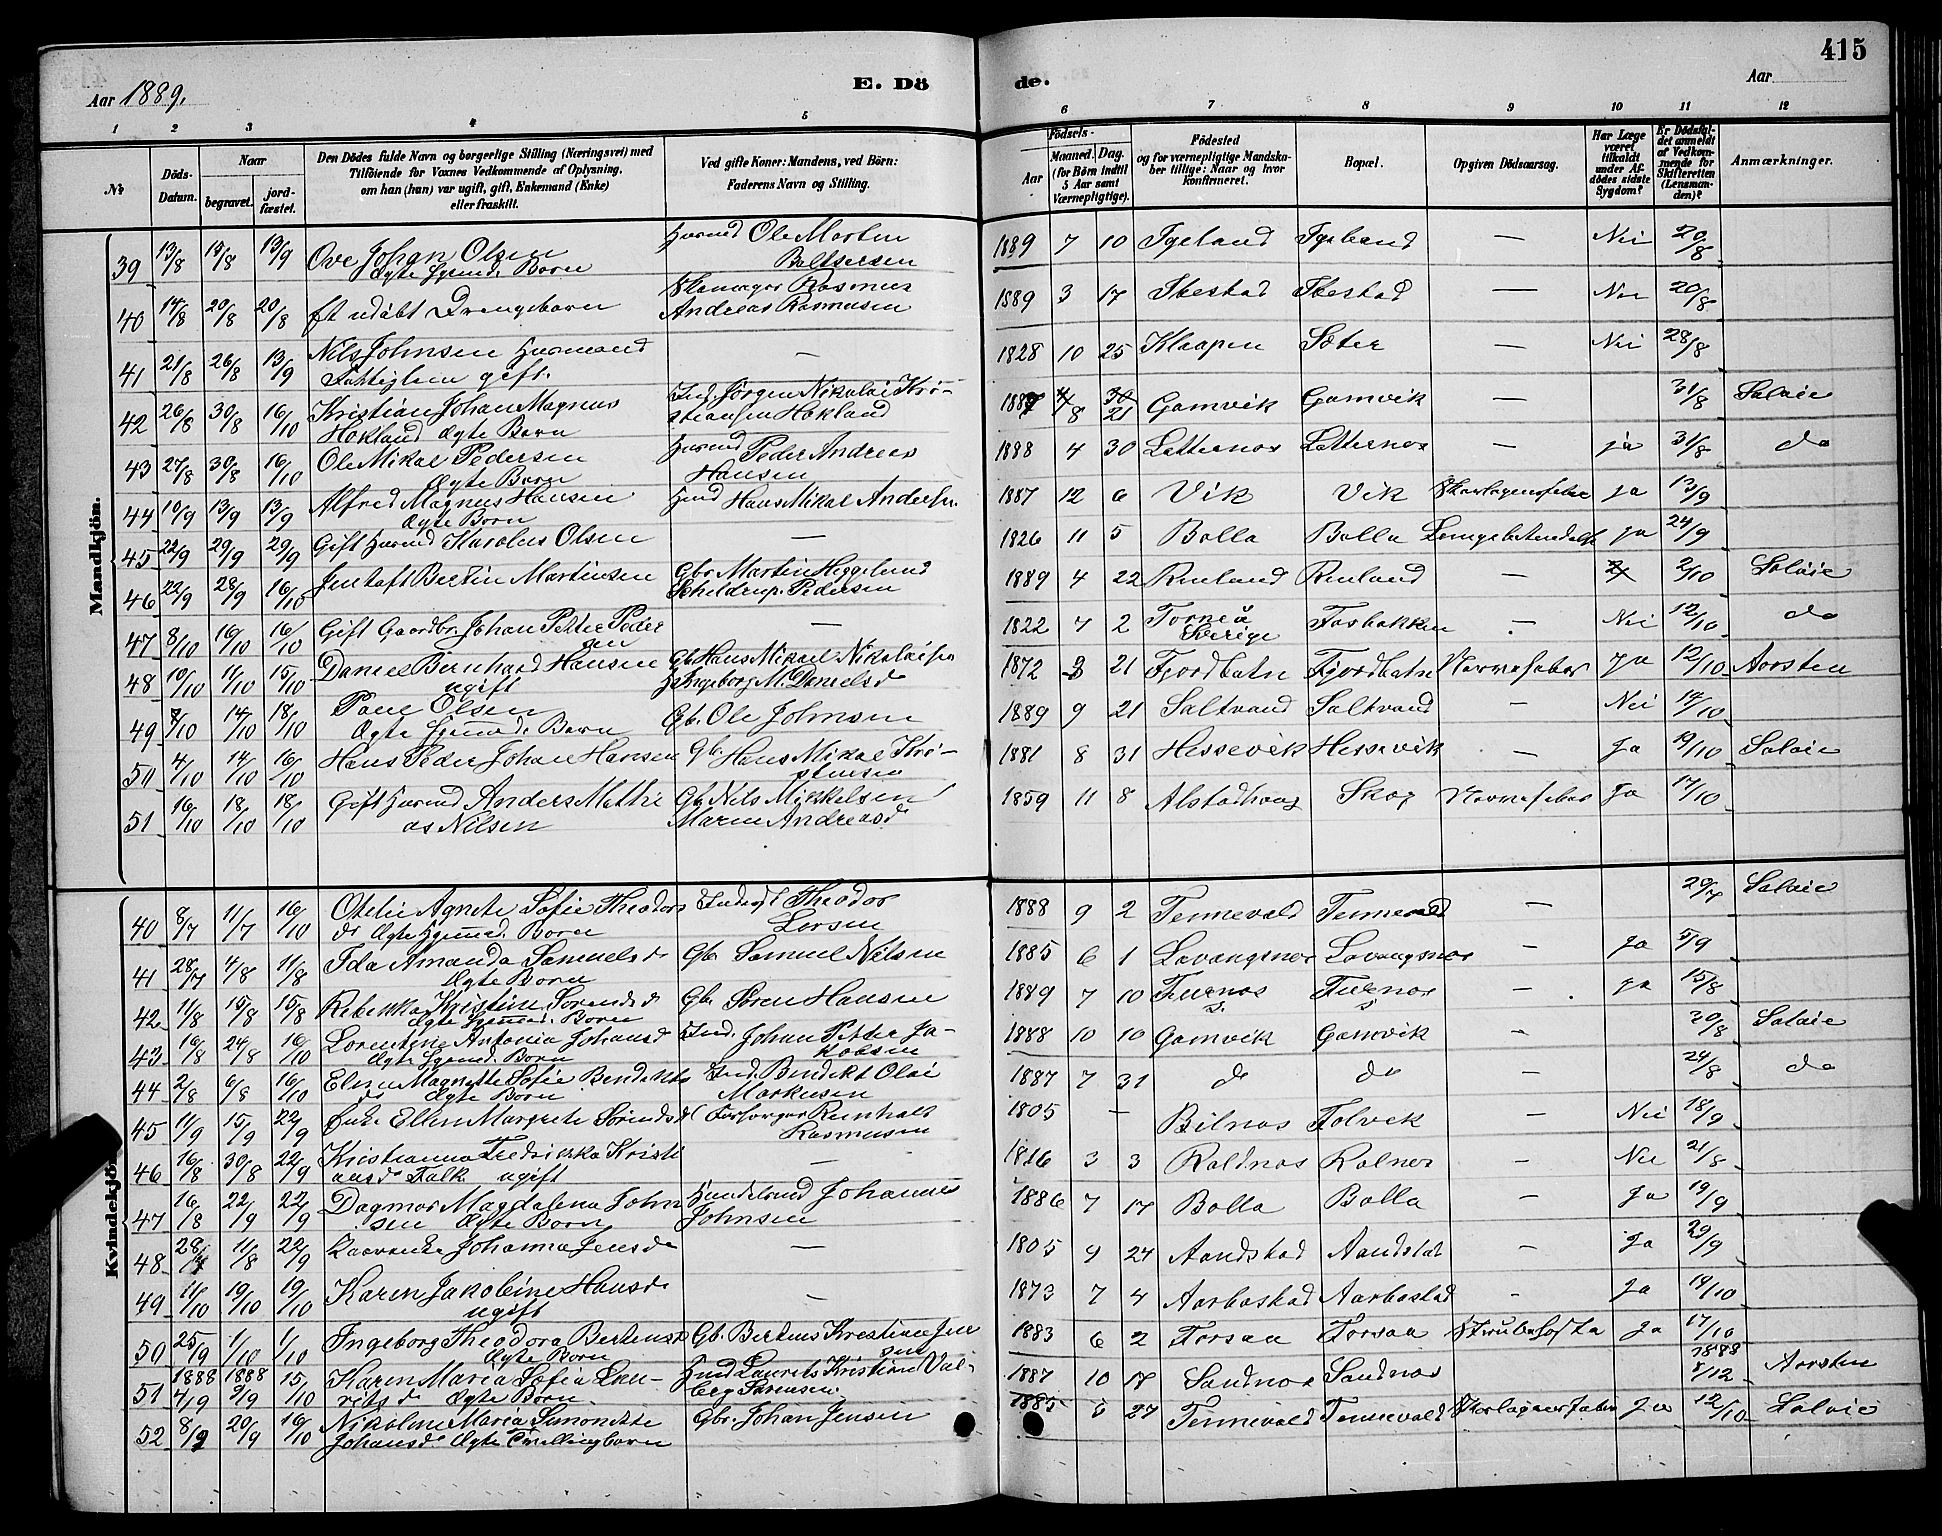 415
Aar 1889.
E. Dö
de.
Aar
1 2 3 4 5 6 7 8 9 10 11 12
№
Döds-Datum.
Naar
begravet.
jord-fæstet.
Den Dödes fulde Navn og borgerlige Stilling (Næringsvei) med
Tilföiende for Voxnes Vedkommende af Oplysning,
om han (hun) var ugift, gift, Enkemand (Enke)
eller fraskilt.
Ved gifte Koner: Mandens, ved Börn:
Faderens Navn og Stilling.
Födsels-
Aar
Maaned. Dag.
(for Börn indtil
5 Aar samt
Værnepligtige).
Födested
og for værnepligtige Mandska-
ber tillige: Naar og hvor
konfirmeret.
Bopæl.
Opgiven Dödsaarsag.
Har Læge
været
tilkaldt
under Af-
dödes sidste
Sygdom?
Er Dödsfal-
det anmeldt
af Vedkom-
mende for
Skifteretten
(Lensman-
den)?
Anmærkninger.
Mandkjön.
39 13/8 19/8 19/9 Ove Johan Olsen Ole Morten 1889 7 10 — Nei 20/8
Ægte Born
40 14/8 20/8 20/8 Et udøbt Drengebarn Rasmus Andreas Rasmusen 1889 3 17 Ibestad Ibestad — Nei 20/8
41 21/8 26/8 13/9 Nils Johnsen Husmand gift. — 1828 10 25 Klaapen Sæter — Nei 28/8
42 26/8 30/8 16/10 Kristian Johan Magnus Ind. Jørgen Nikolai Kri- 8 21 Gamvik Gamvik — 31/8 Saløie
Hokland Ægte Barn stiansen Hokland
43 27/8 30/8 16/10 Ole Mikal Pedersen Peder Andreas 1888 4 30 — ja 31/8 do
Ægte Barn Hansen
44 10/9 13/9 13/9 Alfred Magnus Hansen Hans Mikal Andersen 1887 12 6 Vik Vik ja 13/9
Ægte Born
45 22/9 29/9 29/9 Gift Karolus Olsen — 1826 11 5 Bolla Bolla ja 24/9
46 22/9 28/9 16/10 Jentoft Bertin Martinsen Gbr Martin 1889 4 22 — 2/10 Saløie
Pedersen
47 8/10 16/10 16/10 Gift Gaardbr. Johan Petter Peder — 1822 7 2 Torneå Nei 12/10 do
sen Sverige
48 10/10 11/10 15/10 Daniel Bernhard Hansen Gb Hans Mikael Nikolaisen 1872 3 21 Fjordbotn Fjordbotn ja 12/10 Aorsten
ugift Ingeborg M. Danielsd
49 14/10 18/10 Paul Olsen Gb. Ole Johnsen 1889 9 21 Saltvand Saltvand — Nei 14/10
Ægte Barn
50 4/10 14/10 16/10 Hans Peder Johan Hansen Gb Hans Mikal Kri- 1881 8 31 Hessevik Hessevik — Ja 19/10 Saløie
stensen
51 16/10 18/10 18/10 Gift Anders Mathi Gb Nils Mikkelsen 1859 11 8 Alstadhaug Skog Ja 17/10
as Nilsen Maren Andreasd
Kvindekjön.
40 8/7 11/7 16/10 Otelie Agnete Sofie Theodors Theodor 1888 9 2 Tennevald Tennevald — 29/7 Saløie
dr Ægte Born Larsen
41 28/7 4/8 11/8 Ida Amanda Samuelsd Gb Samuel Nilsen 1885 6 1 Lavangsnes Lavangsnes — Ja 5/9
Ægte Born
42 11/8 15/8 15/8 Rebekka Kristine Sørensd Gb. Søren Hansen 1889 7 10 Furnes Furnes — Ja 15/8
Ægte Born
43 16/8 24/8 16/10 Lorentine Antonia Johansd Ind. Johan Petter Ja- 1888 10 10 Gamvik Gamvik — 30/8 Saløie
Ægte Born kobsen
44 2/8 6/8 16/10 Magnette Sofie Bendikts Ind. Bendikt Olai 1887 7 31 do do — 24/8 do
Ægte Born Markusen
45 11/9 15/9 22/9 Enke Ellen Margrete Sørensd Forsørger Reinholt 1805 — Tolvik — Nei 18/9
Rasmusen
46 16/8 30/8 22/9 Kristianna Fredrikka Kristi — 1816 3 3 Rolnes — Nei 21/8
ansd Falk ugift
47 16/8 22/9 22/9 Dagmar Magdalena John Johannes 1886 7 17 Bolla Bolla — Ja 19/9
sen Ægte Born Johnsen
48 28/ 11/8 22/9 Johanna Jensd — 1805 9 24 Aandstad Aandstad — Ja 29/9
49 11/10 19/10 19/10 Karen Jakobine Hansd — 1873 7 4 Aarbostad Aarbostad - Ja 19/10
ugift
50 25/9 1/10 1/10 Ingeborg Theodora Bertensd Gb. Bertens Kristian Jen 1883 6 2 Forsaa Forsaa Strubehoste Ja 17/10
Ægte Born sen
51 1888 4/9 1888 9/9 15/10 Karen Maria Sofia Lau- Laurits Kristian Val- 1887 10 17 Sandnes Sandnes 1888 8/12 Aorsten
ritsd Ægte Born berg Sørensen
52 8/9 20/9 16/10 Nikoline Maria Simonette Gbr. Johan Jensen 1885 5 27 Tennevald Tennevald Ja 12/10 Saløie
Johansd Ægte Tvillingbarn